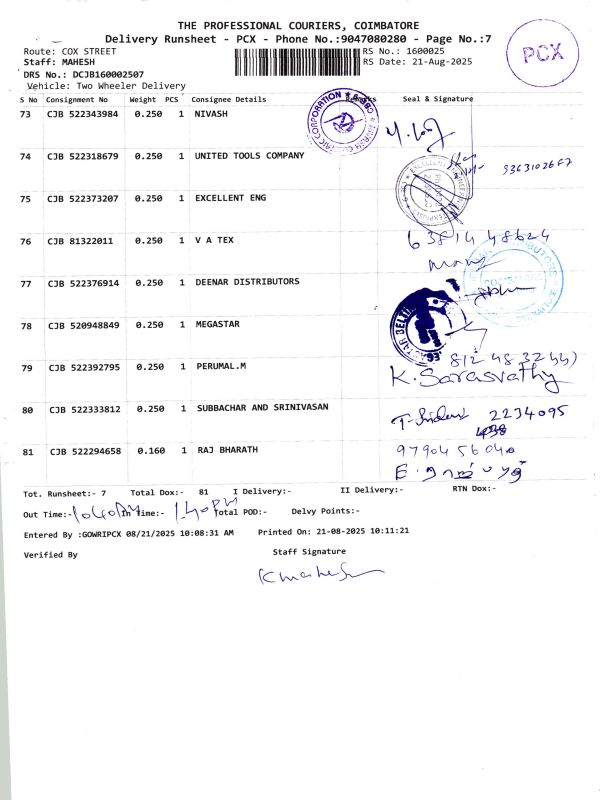 THE PROFESSIONAL COURIERS, COIMBATORE
Delivery Runsheet - PCX - Phone No.:9047080280 - Page No.:7
PCX
Route: COX STREET
RS No.: 1600025
Staff: MAHESH
RS Date: 21-Aug-2025
DRS No.: DCJB160002507
Vehicle: Two Wheeler Delivery
S No Consignment No Weight PCS Consignee Details Seal & Signature
73 CJB 522343984 0.250 1 NIVASH
74 CJB 522318679 0.250 1 UNITED TOOLS COMPANY
75 CJB 522373207 0.250 1 EXCELLENT ENG
76 CJB 81322011 0.250 1 V A TEX 63814 48624
77 CJB 522376914 0.250 1 DEENAR DISTRIBUTORS
78 CJB 520948849 0.250 1 MEGASTAR
79 CJB 522392795 0.250 1 PERUMAL.M
K. Sarasvathy
80 CJB 522333812 0.250 1 SUBBACHAR AND SRINIVASAN
2234095
81 CJB 522294658 0.160 1 RAJ BHARATH
Tot. Runsheet:- 7 Total Dox:- 81 I Delivery:- II Delivery:- RTN Dox:-
Out Time:- In Time:- 1.40PM Total POD:- Delvy Points:-
Entered By :GOWRIPCX 08/21/2025 10:08:31 AM Printed On: 21-08-2025 10:11:21
Verified By Staff Signature
K mahesh